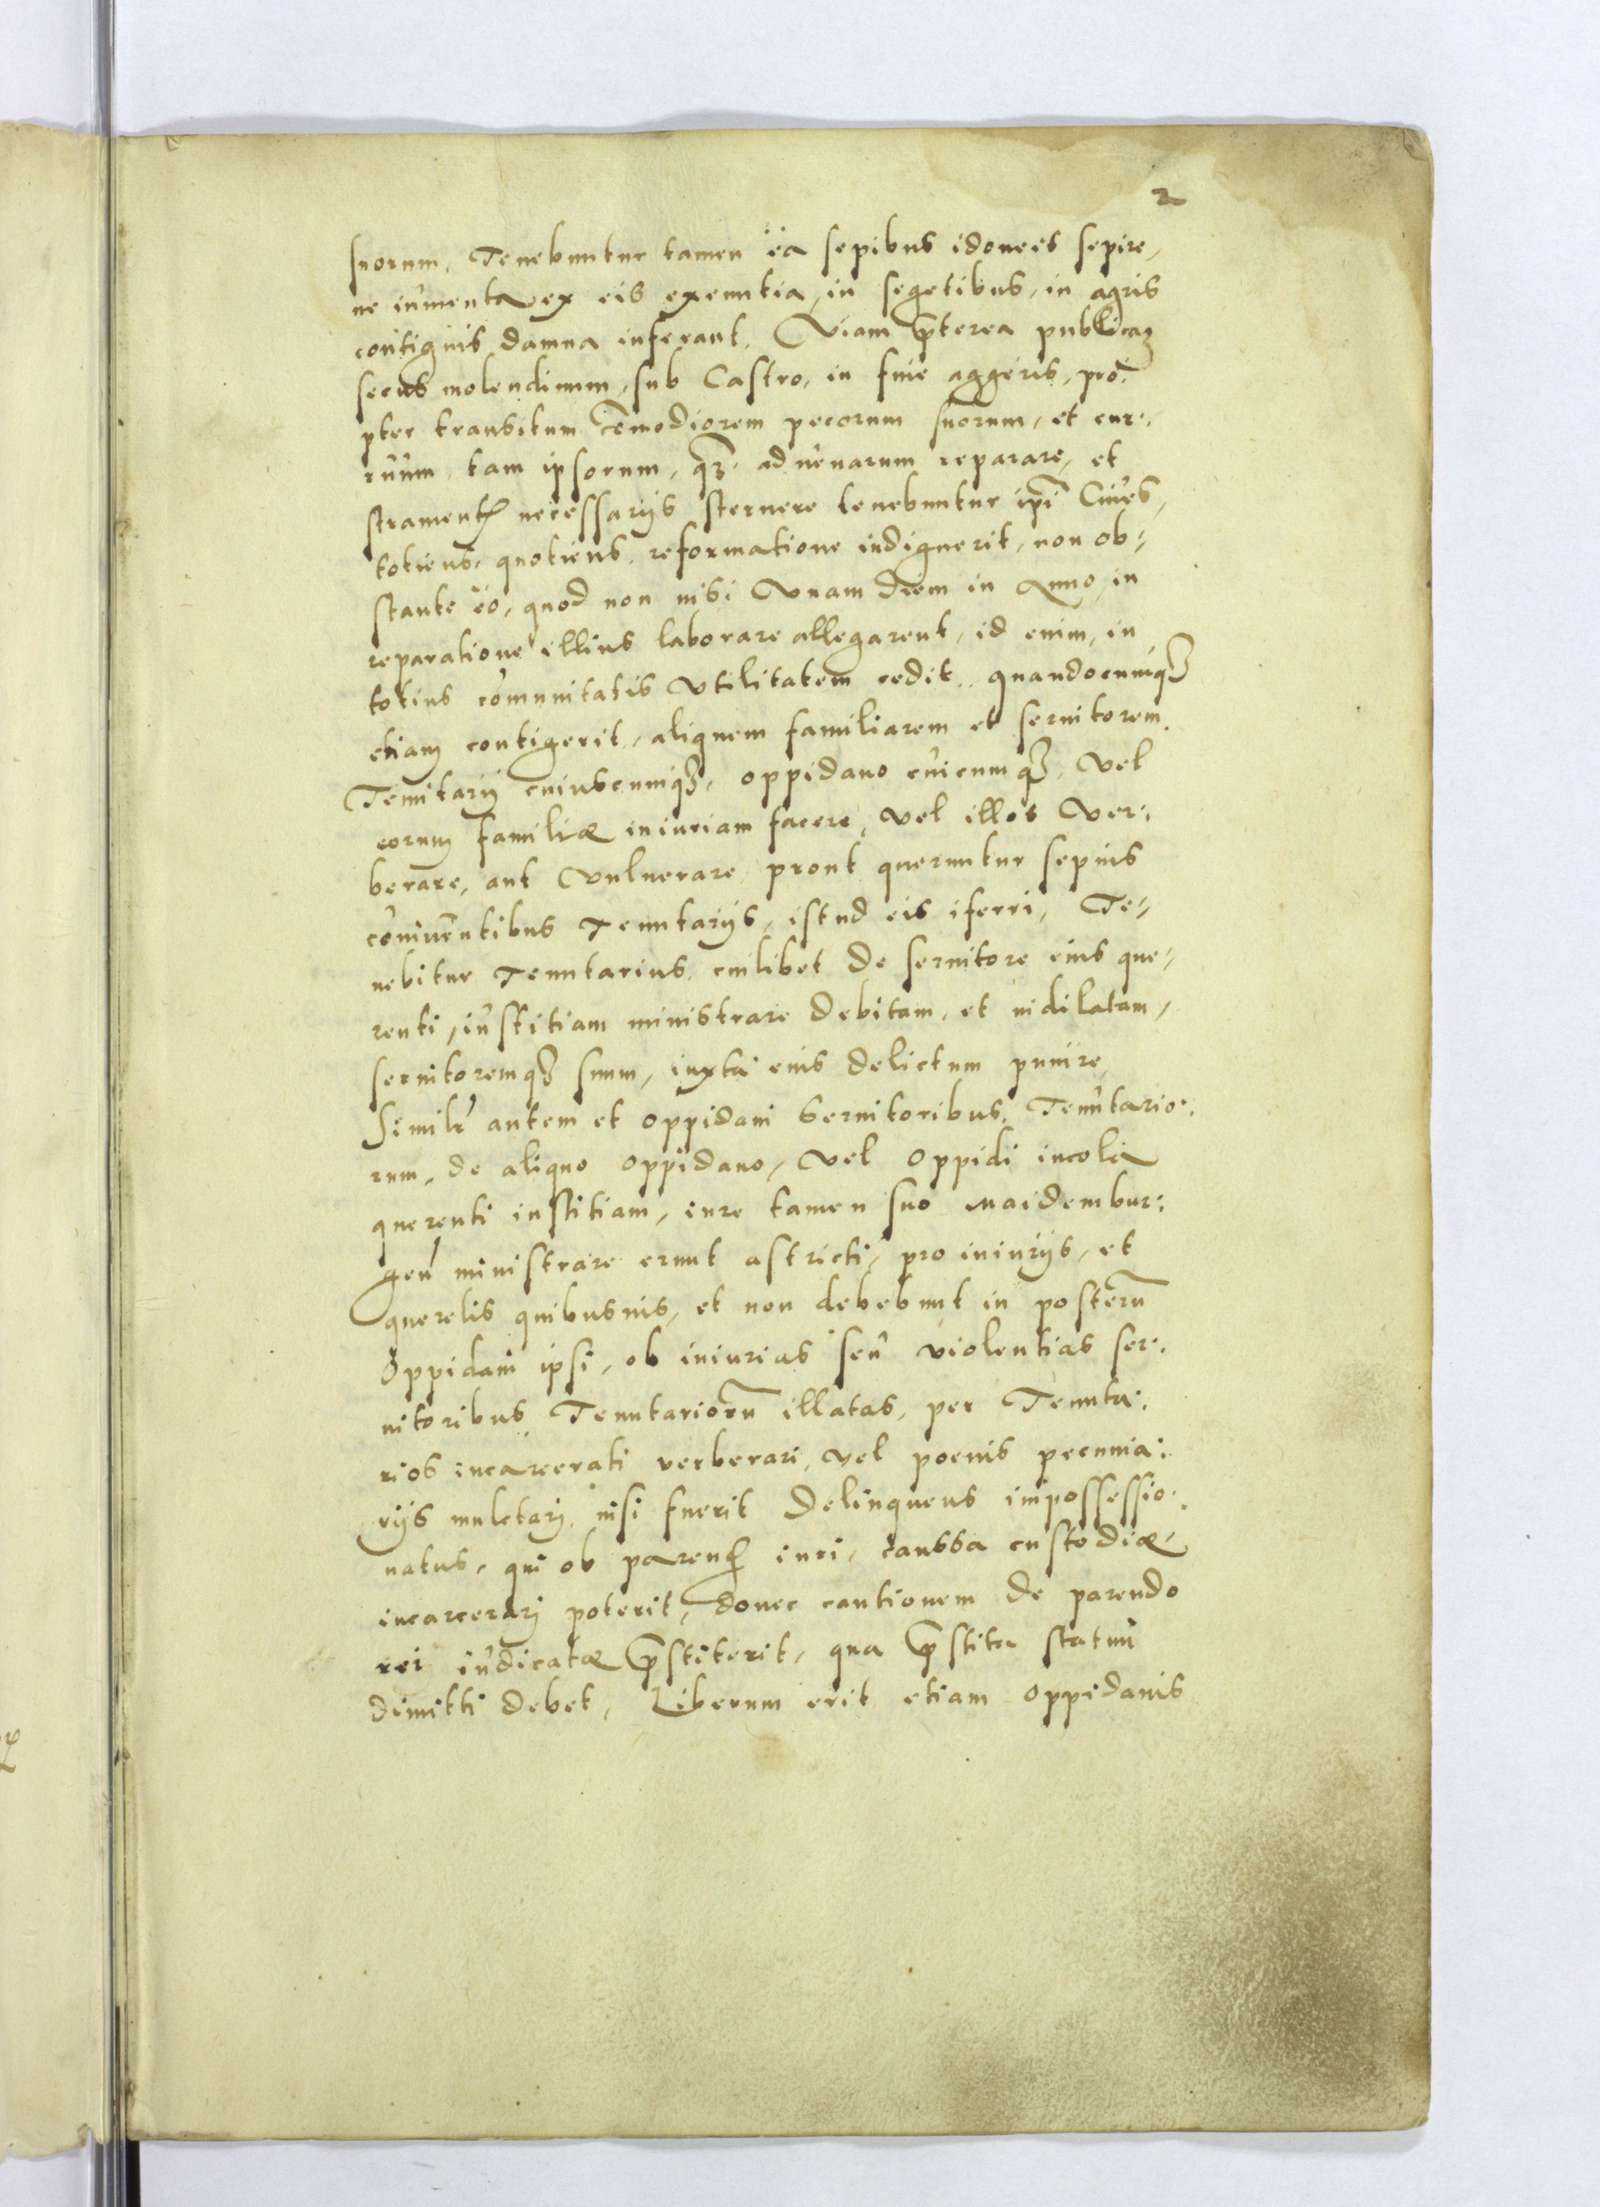 2
suorum, Tenebuntur tamen ea sepibus idoneis sepire,
ne iumenta ex eis exeuntia, in segetibus, in agris
contiguis damna inferant. Viam p̄terea publicaɜ
secus molendinum, sub Castro, in fine aggeris, pro:
pter transitum cōmodiorem pecorum suorum, et cur:
ruum tam ipsorum, qɜ aduenarum reparare, et
stramentꝭ necessarijs sternere tenebuntur ipi̅ Ciues,
totiens, quotiens reformatione indiguerit, non ob:
stante eo, quod non nisi Vnam diem in Anno, in
reparatione illius laborare allegarent, id enim, in
totius comunitatis Vtilitatem cedit. quandocumqɜ
etiam contigerit, aliquem familiarem et seruitorem
Tenutarij cuiuscumqɜ, oppidano cuicumqɜ, Vel
eorum familiæ iniuriam facere, Vel illos Ver:
berare, aut Vulnerare, prout queruntur sepius
coniuentibus Tenutarijs, istud eis iferri, Te:
nebitur Tenutarius cuilibet de seruitore eius que:
renti, iustitiam ministrare debitam, et indilatam,
seruitoremqɜ suum, iuxta eius delictum punire,
Similr̄ autem et oppidani Seruitoribus Tenutario:
rum, de aliquo oppidano, Vel oppidi incola
querenti iustitiam, iure tamen suo Maidembur:
gen̄ ministrare erunt astricti, pro iniurijs, et
querelis quibusuis, et non debebunt in posterū
Oppidani ipsi, ob iniurias seu violentias ser:
uitoribus Tenutariorū illatas, per Tenuta:
rios incarcerati verberari, Vel poenis pecunia:
rijs mulctarj, nisi fuerit delinquens impossessio:
natus, qui ob parendꝭ iuri, caussa custodiæ,
incarcerarj poterit, donec cautionem de parendo
rei iudicatæ p̄stiterit, qua p̄stita statim
dimitti debet, Liberum erit etiam oppidanis